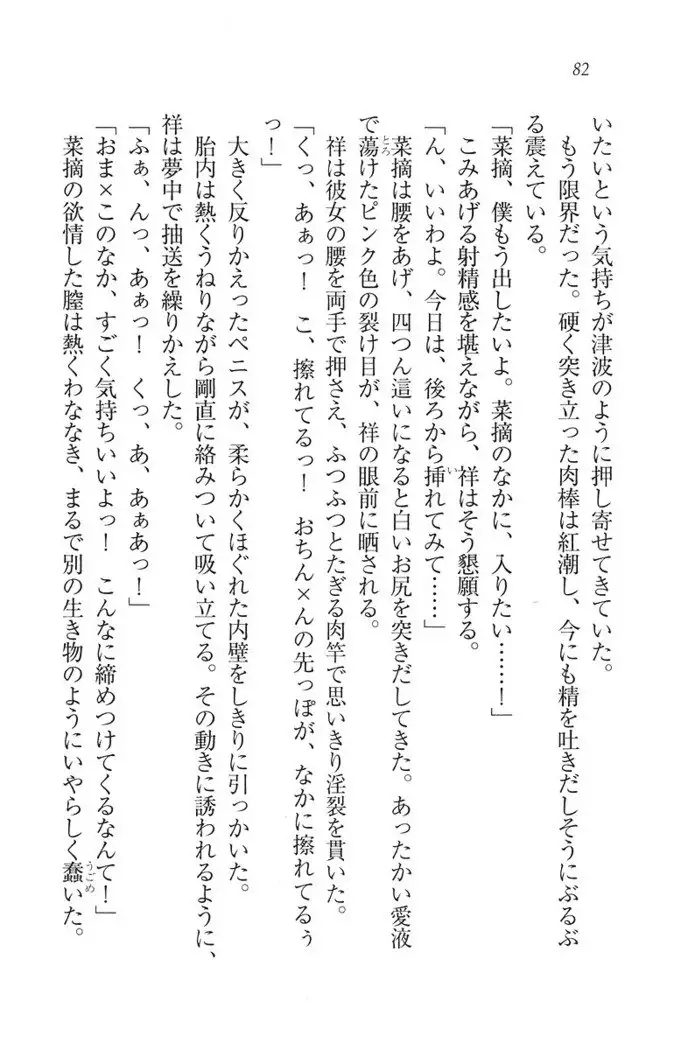 82
いたいという気持ちが津波のように押し寄せてきていた。
もう限界だった。硬く突き立った肉棒は紅潮し、今にも精を吐きだしそうにぶるぶ
る震えている。
「菜摘、僕もう出したいよ。菜摘のなかに、入りたい……！」
こみあげる射精感を堪えながら、祥はそう懇願する。
「ん、いいわよ。今日は、後ろから挿れてみて……」
菜摘は腰をあげ、四つん這いになると白いお尻を突きだしてきた。あったかい愛液
で蕩けたピンク色の裂け目が、祥の眼前に晒される。
祥は彼女の腰を両手で押さえ、ふつふつとたぎる肉竿で思いきり淫裂を貫いた。
「くっ、あぁっ！　こ、擦れてるっ！　おちん×んの先っぽが、なかに擦れてるぅ
っ！」
大きく反りかえったペニスが、柔らかくほぐれた内壁をしきりに引っかいた。
胎内は熱くうねりながら剛直に絡みついて吸い立てる。その動きに誘われるように、
祥は夢中で抽送を繰りかえした。
「ふぁ、んっ、あぁっ！　くっ、あ、あぁあっ！」
「おま×このなか、すごく気持ちいいよっ！　こんなに締めつけてくるなんて！」
菜摘の欲情した膣は熱くわななき、まるで別の生き物のようにいやらしく蠢いた。